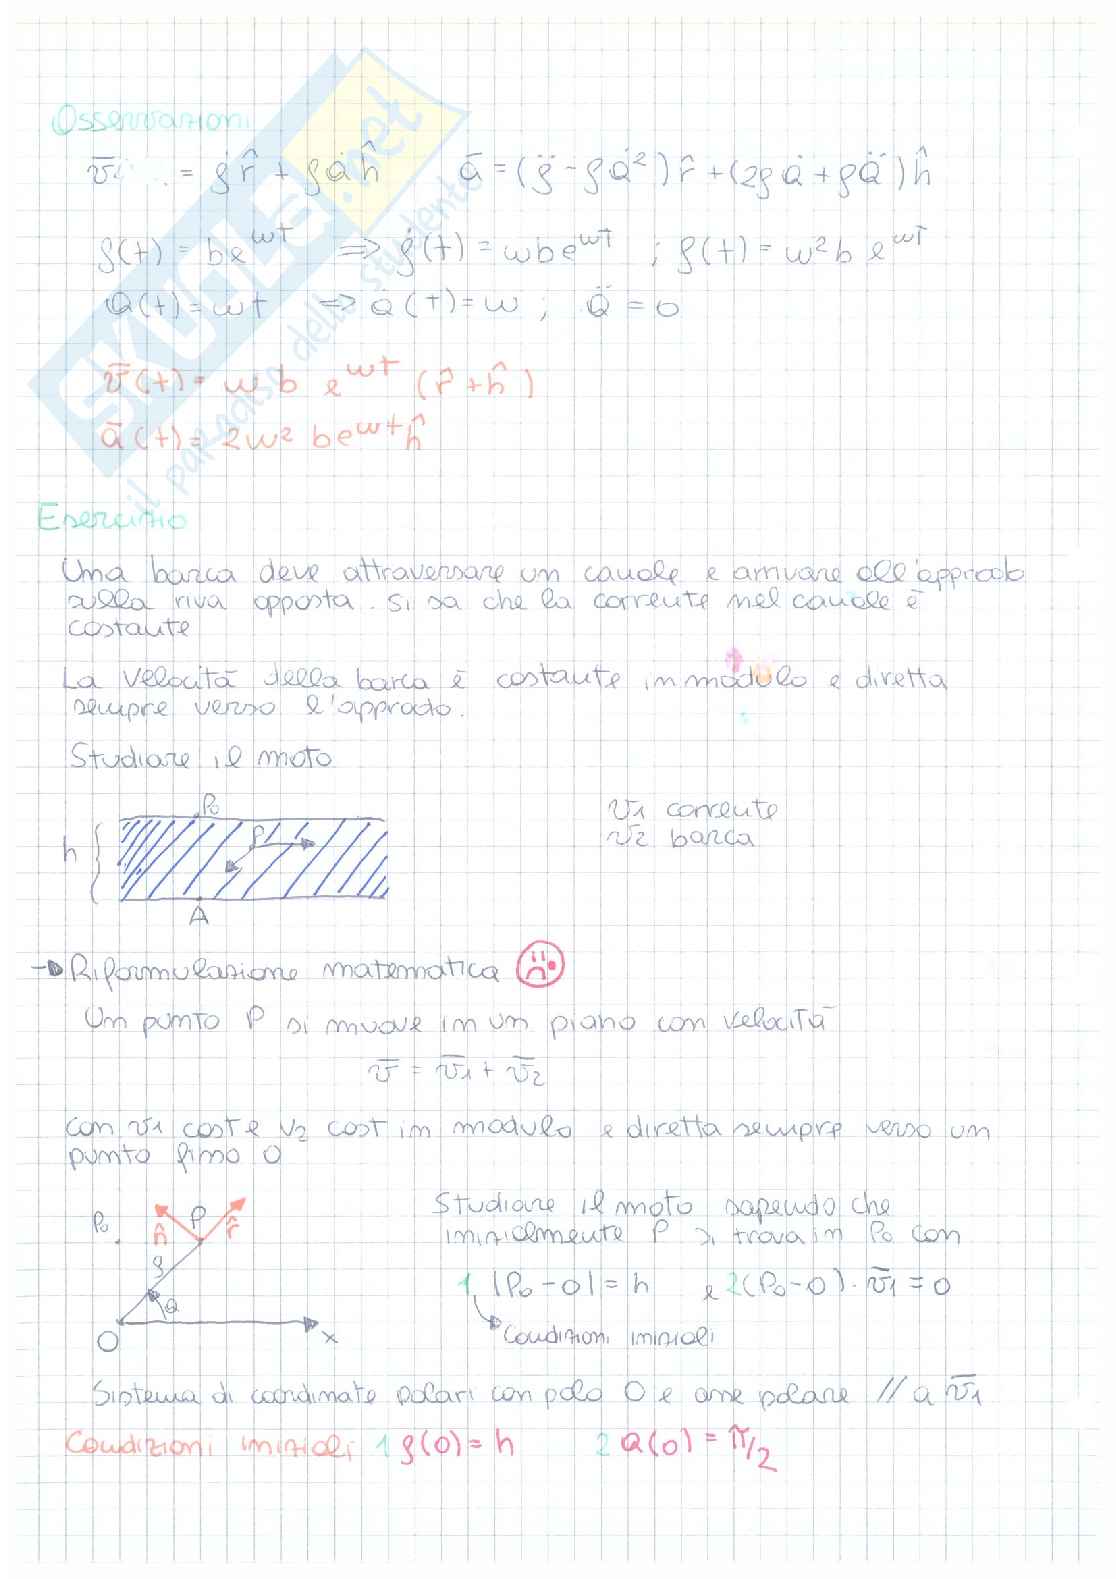 Osservazioni
v̄ = ρ̇ r̂ + ρ ȧ ĥ   ā = (ρ̈ - ρȧ²) r̂ + (2ρ̇ ȧ + ρä) ĥ
ρ(t) = be^ωt => ρ̇(t) = ωbe^ωt ; ρ(t) = ω² b e^ωt
a(t) = ωt => a(t) = ω ; ä = 0
v̄(t) = ω b e^ωt (r̂ + ĥ)
ā(t) = 2ω² be^ωt ĥ
SKUOLA.net
il paradiso dello studente
Esercizio
Una barca deve attraversare un canale e arrivare all'approdo
sulla riva opposta. Si sa che la corrente nel canale è
costante
La velocità della barca è costante in modulo e diretta
sempre verso l'approdo.
Studiare il moto
P₀
h
P
A
v1 corrente
v2 barca
→ Riformulazione matematica
Un punto P si muove in un piano con velocità
v̄ = v̄1 + v̄2
con v1 cost e v2 cost in modulo e diretta sempre verso un
punto fisso O
P₀ n̂ P r̂
ρ
a
O x
Studiare il moto sapendo che
inizialmente P si trova in P₀ con
1 |P₀ - O| = h e 2 (P₀ - O) · v̄1 = 0
Condizioni iniziali
Sistema di coordinate polari con polo O e asse polare // a v̄1
Condizioni iniziali 1 ρ(0) = h 2 a(0) = π/2